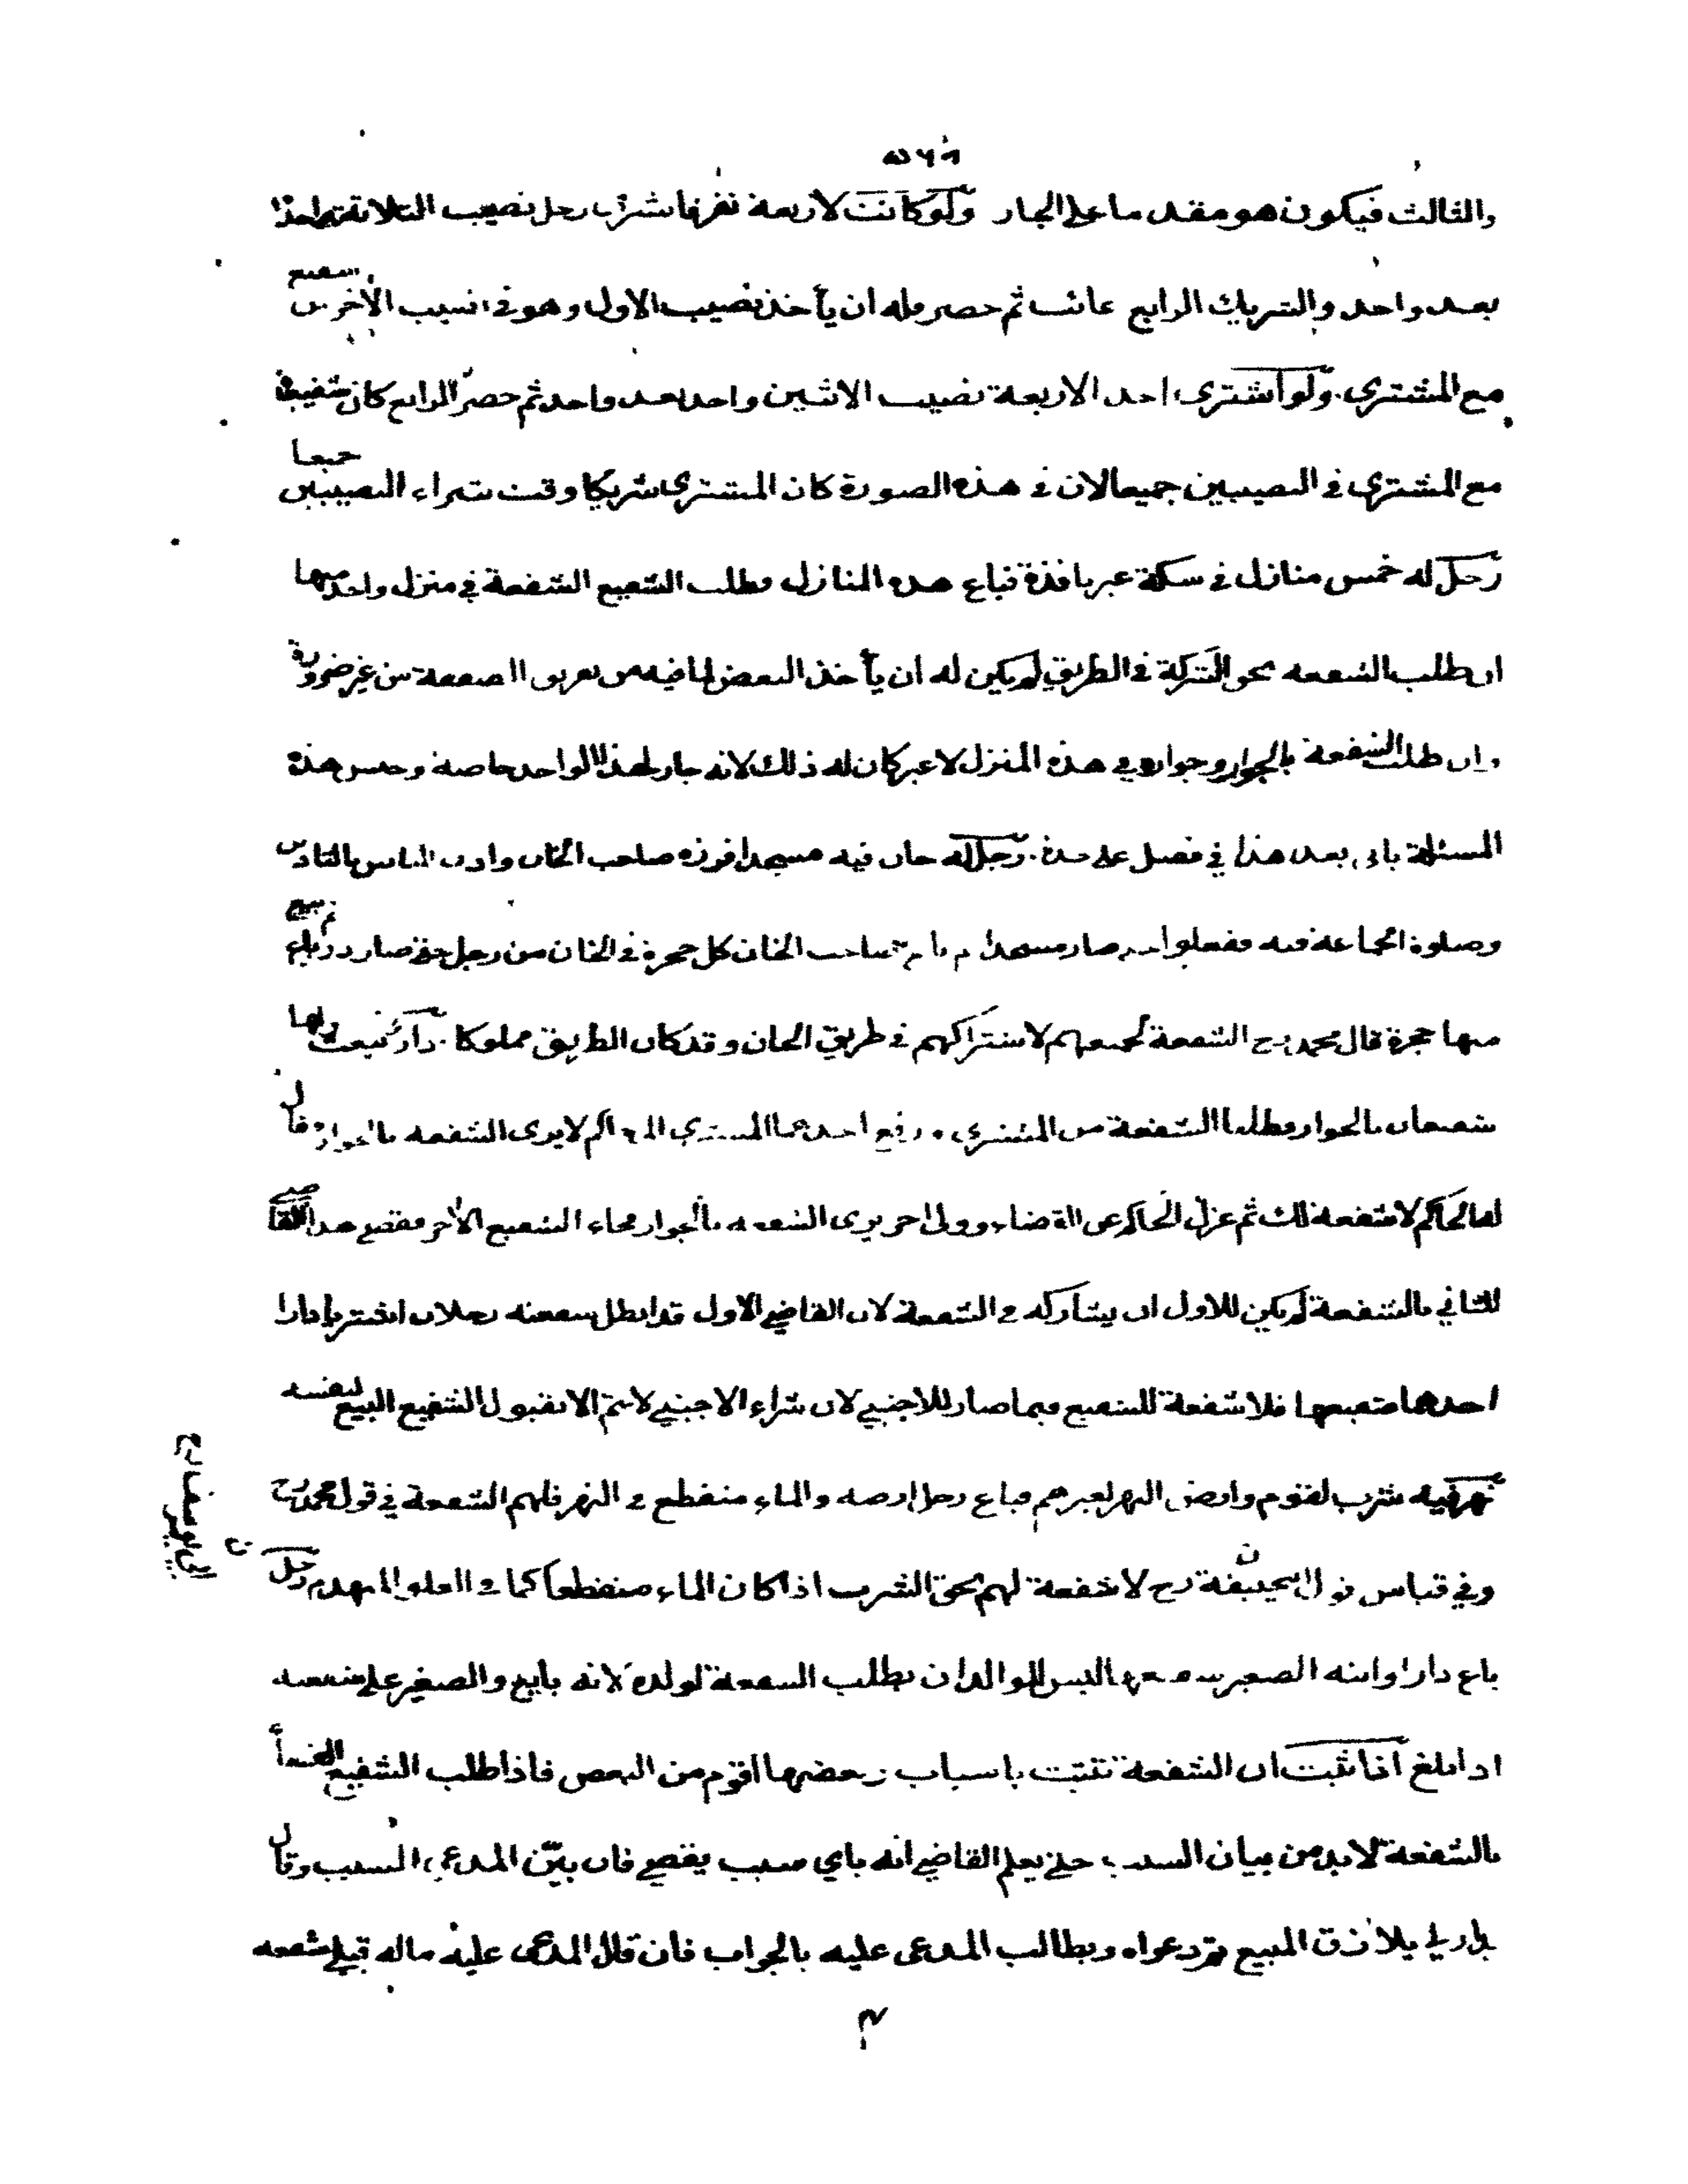 والثالث فيكون هو مقدما على الجار ولو كانت لاربعة نفر فاشترى رجل نصيب الثلاثة واحدا
بعد واحد والشريك الرابع غائب ثم حضر فله ان يأخذ نصيب الاول وهو في نصيب الآخرين شفيع
مع المشتري ولو اشترى احد الاربعة نصيب الاثنين واحدا بعد واحد ثم حضر الرابع كان شفيعا
مع المشتري في النصيبين جميعا لان في هذه الصورة كان المشتري شريكا وقت شراء النصيبين جميعا
رجل له خمس منازل في سكة غير نافذة فباع هذه المنازل فطلب الشفيع الشفعة في منزل واحد منها
ان طلب الشفعة بحق الشركة في الطريق لم يكن له ان يأخذ البعض لما فيه من تفريق الصفقة من غير ضرورة
وان طلب الشفعة بالجوار وجواره في هذه المنزل لا غير كان له ذلك لانه جار لهذا الواحد خاصة وجنس هذه
المسئلة يأتي بعد هذا في فصل على حدة رجل له خان فيه مسجد افرزه صاحب الخان واذن الناس بالتاذين
وصلوة الجماعة فيه ففعلوا حتى صار مسجدا ثم باع صاحب الخان كل حجرة في الخان من رجل حتى صار دربا ثم بيع
منها حجرة قال محمد رح الشفعة لجميعهم لاشتراكهم في طريق الخان وقد كان الطريق مملوكا دار بيعت ولها
شفيعان بالجوار وطلبا الشفعة من المشتري ورفع احدهما المشتري الى حاكم لا يرى الشفعة بالجوار فقال
لها الحاكم لا شفعة لك ثم عزل الحاكم عن القضاء وولي اخر يرى الشفعة بالجوار فجاء الشفيع الآخر فقضى هذا القاضي
للثاني بالشفعة لم يكن للاول ان يشاركه في الشفعة لان القاضي الاول قد ابطل شفعته رجلان اشتريا دارا
احدهما شفيعها فلا شفعة للشفيع فيما صار للاجنبي لان شراء الاجنبي لا يتم الا بقبول الشفيع البيع لنفسه
نهر فيه شرب لقوم وارض النهر لغيرهم فباع رجل ارضه والماء منقطع في النهر فلهم الشفعة في قول محمد رح
وفي قياس قول ابيحنيفة رح لا شفعة لهم بحق الشرب اذا كان الماء منقطعا كما في العلو المنهدم رجل
باع دارا وابنه الصغير شفيعها ليس للوالد ان يطلب الشفعة لولده لانه بايع والصغير على شفعته
اذا بلغ اذا ثبت ان الشفعة تثبت باسباب بعضها اقوم من البعض فاذا طلب الشفيع القضاء
بالشفعة لابد من بيان السبب حتى يعلم القاضي انه باي سبب يقضي فان بيّن المدعي السبب وقال
بدار لي يلازق المبيع تم دعواه ويطالب المدعى عليه بالجواب فان قال المدعى عليه ماله قبلي شفعة